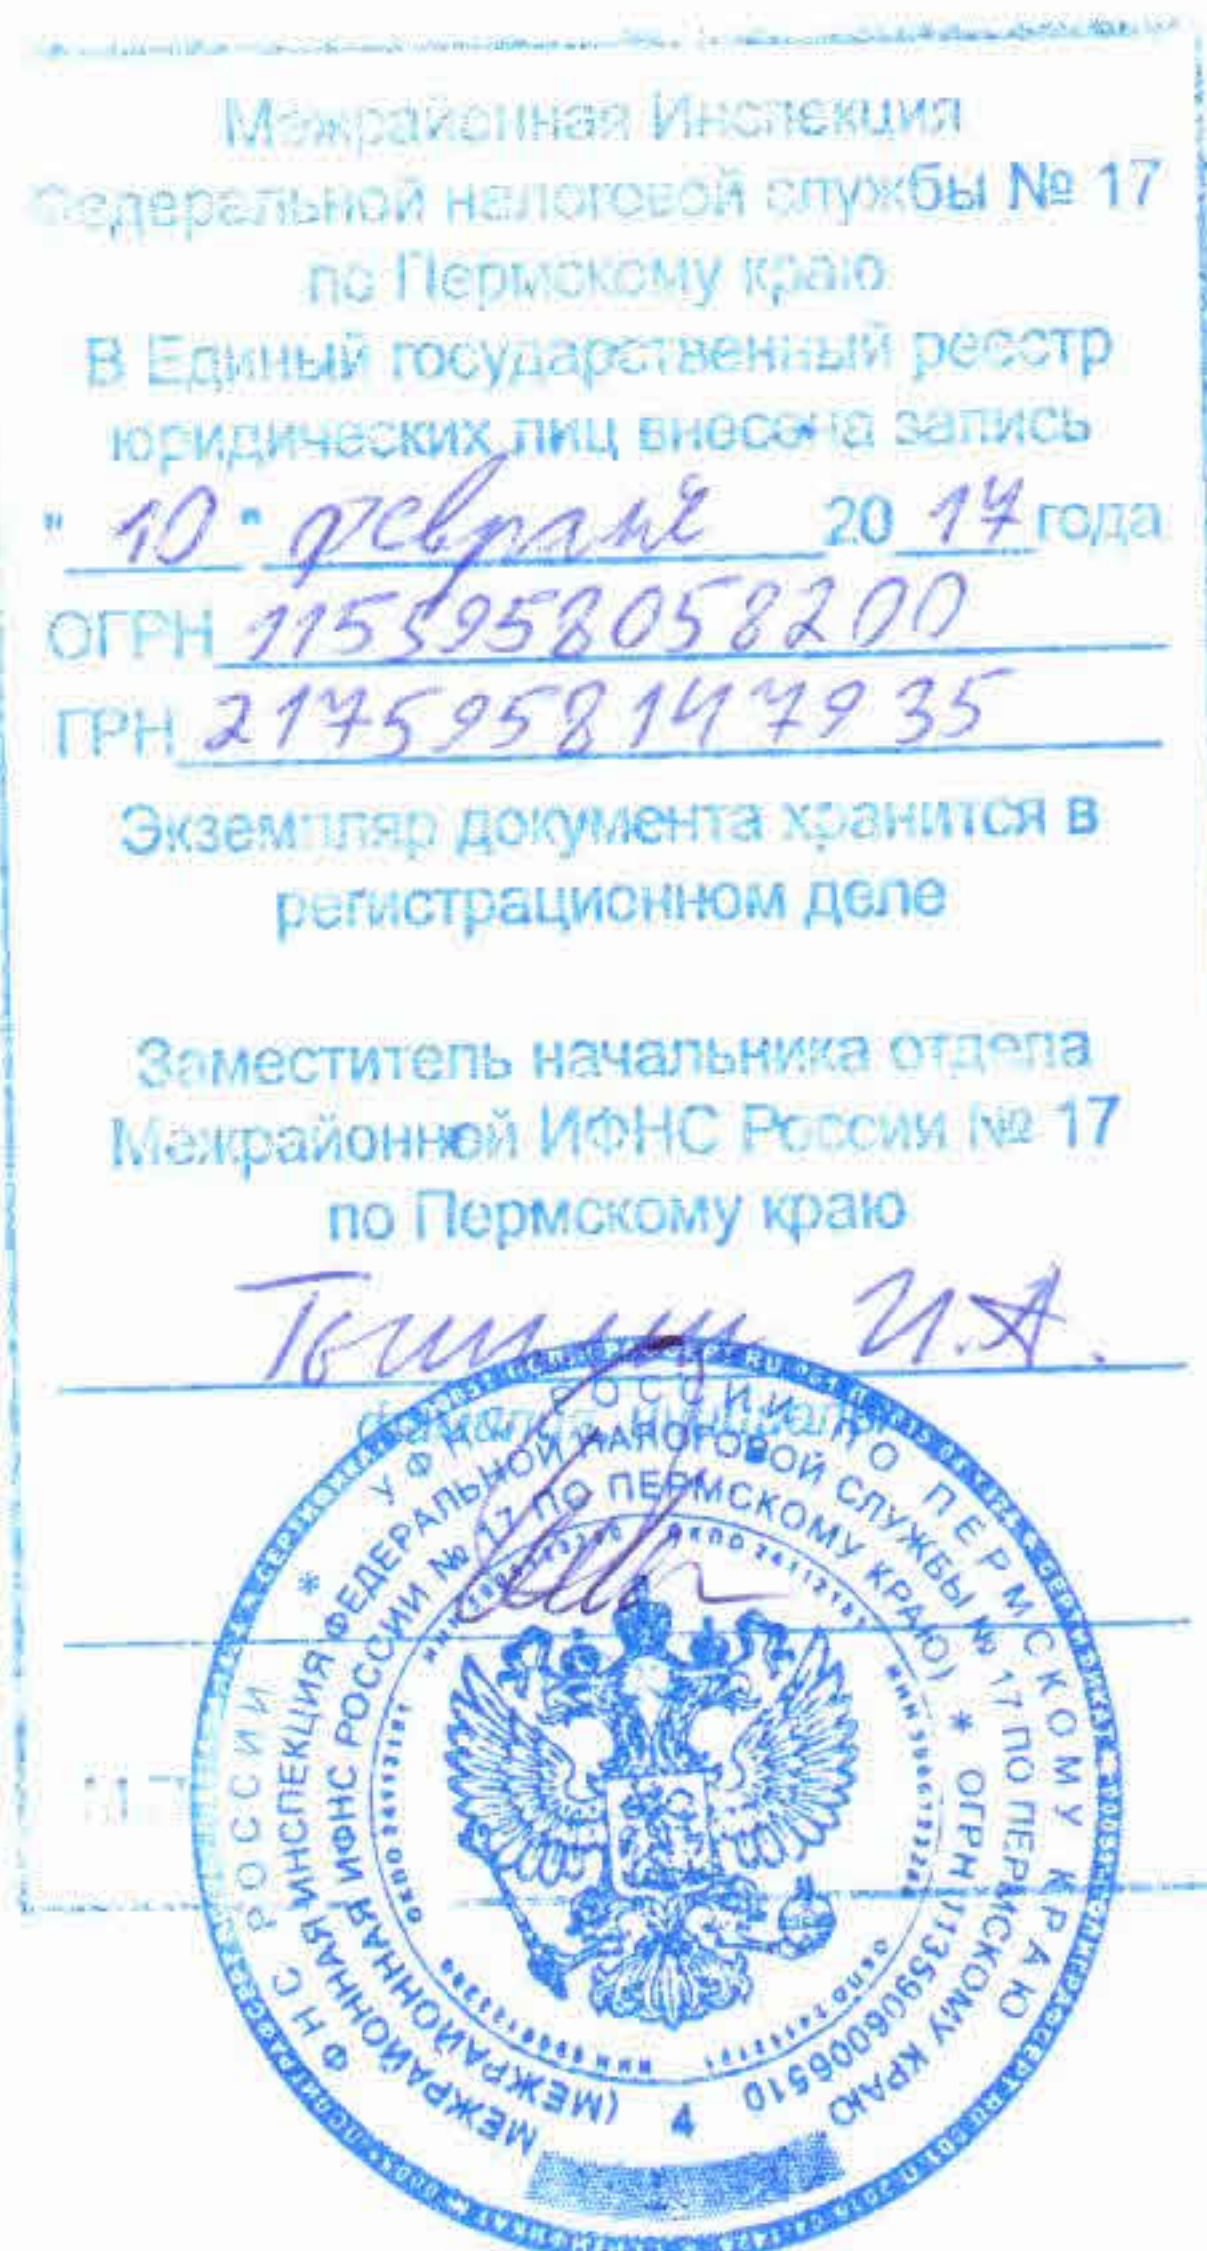 Межрайонная Инспекция
Федеральной налоговой службы № 17
по Пермскому краю
В Единый государственный реестр
юридических лиц внесена запись
" 10 " февраля 2017 года
ОГРН 1155958058200
ГРН 2175958147935
Экземпляр документа хранится в
регистрационном деле
Заместитель начальника отдела
Межрайонной ИФНС России № 17
по Пермскому краю
И.А.
фамилия, инициалы
ФНС РОССИИ * УФНС РОССИИ ПО ПЕРМСКОМУ КРАЮ
МЕЖРАЙОННАЯ ИНСПЕКЦИЯ ФЕДЕРАЛЬНОЙ НАЛОГОВОЙ СЛУЖБЫ № 17 ПО ПЕРМСКОМУ КРАЮ
(МЕЖРАЙОННАЯ ИФНС РОССИИ № 17 ПО ПЕРМСКОМУ КРАЮ) * ОГРН 1135906006510
4